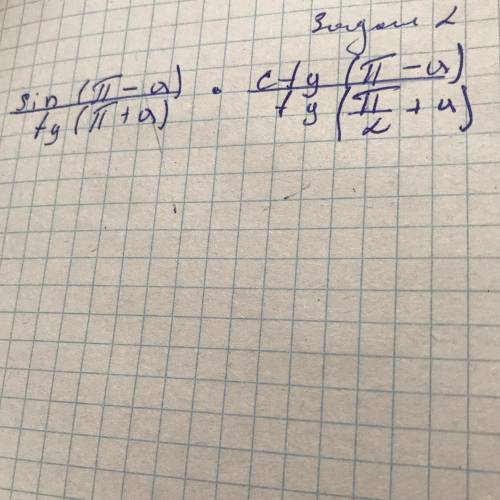 Задан 2
sin (π - α) / tg (π + α) · ctg (π - α) / tg (π/2 + α)